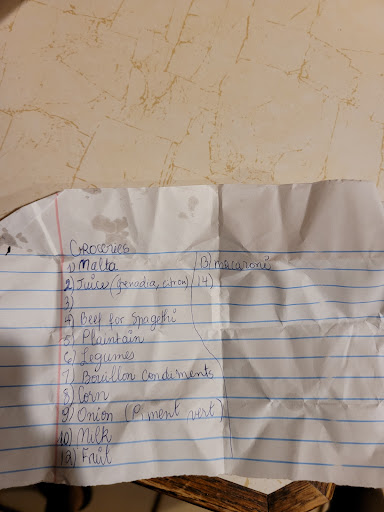 Groceries
1) Malta
2) Juice (grenadia, citron)
3)
4) Beef for Spagethi
5) Plaintain
6) Legumes
7) Bouillon Condiments
8) Corn
9) Onion (Piment vert)
10) Milk
12) Fruit
13) macaroni
14)